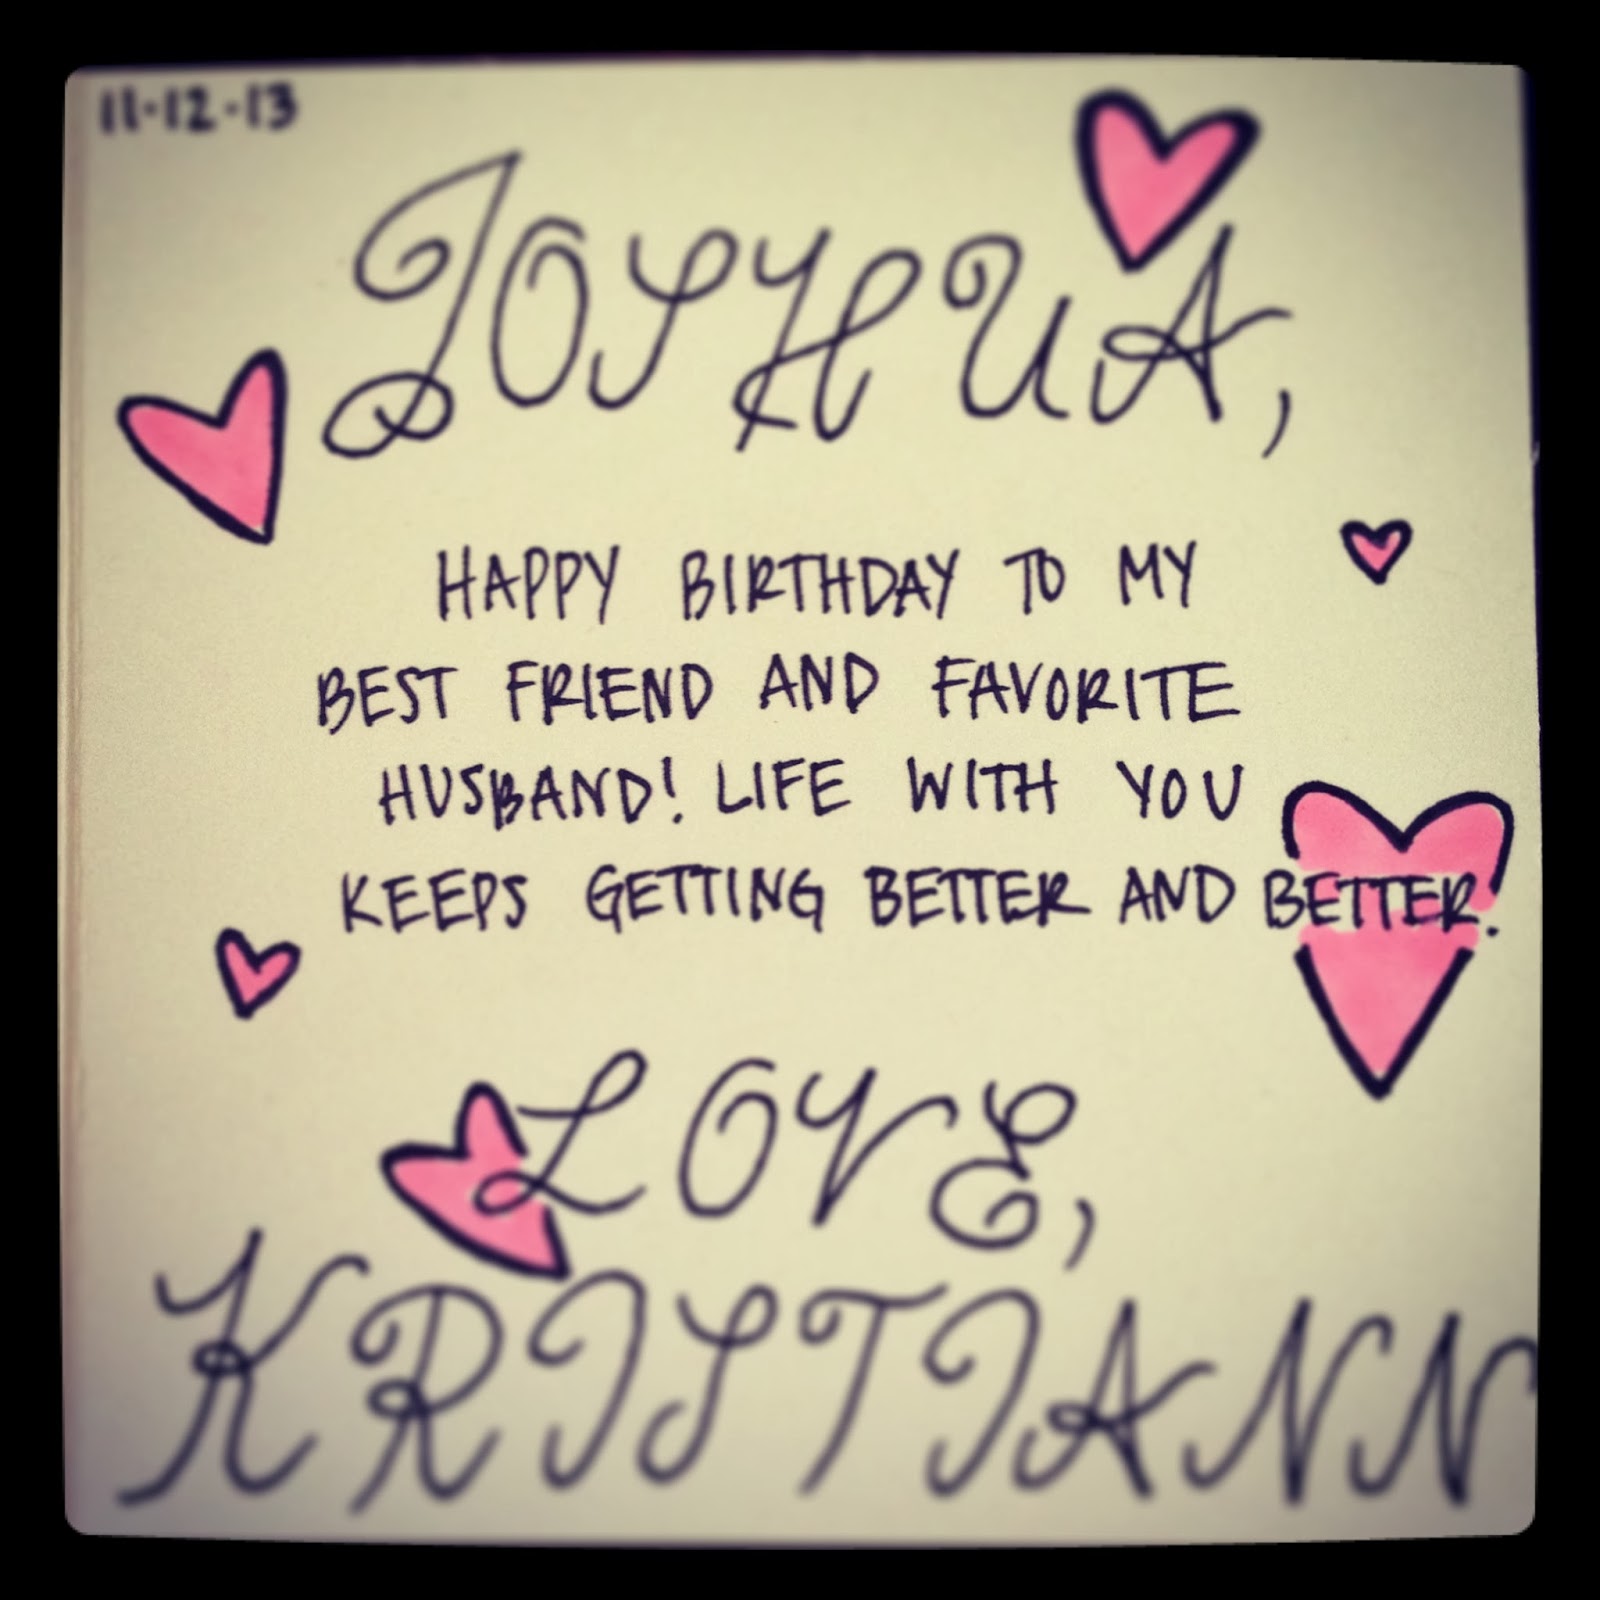 11-12-13
JOSHUA,
HAPPY BIRTHDAY TO MY
BEST FRIEND AND FAVORITE
HUSBAND! LIFE WITH YOU
KEEPS GETTING BETTER AND BETTER.
LOVE,
KRISTIANN